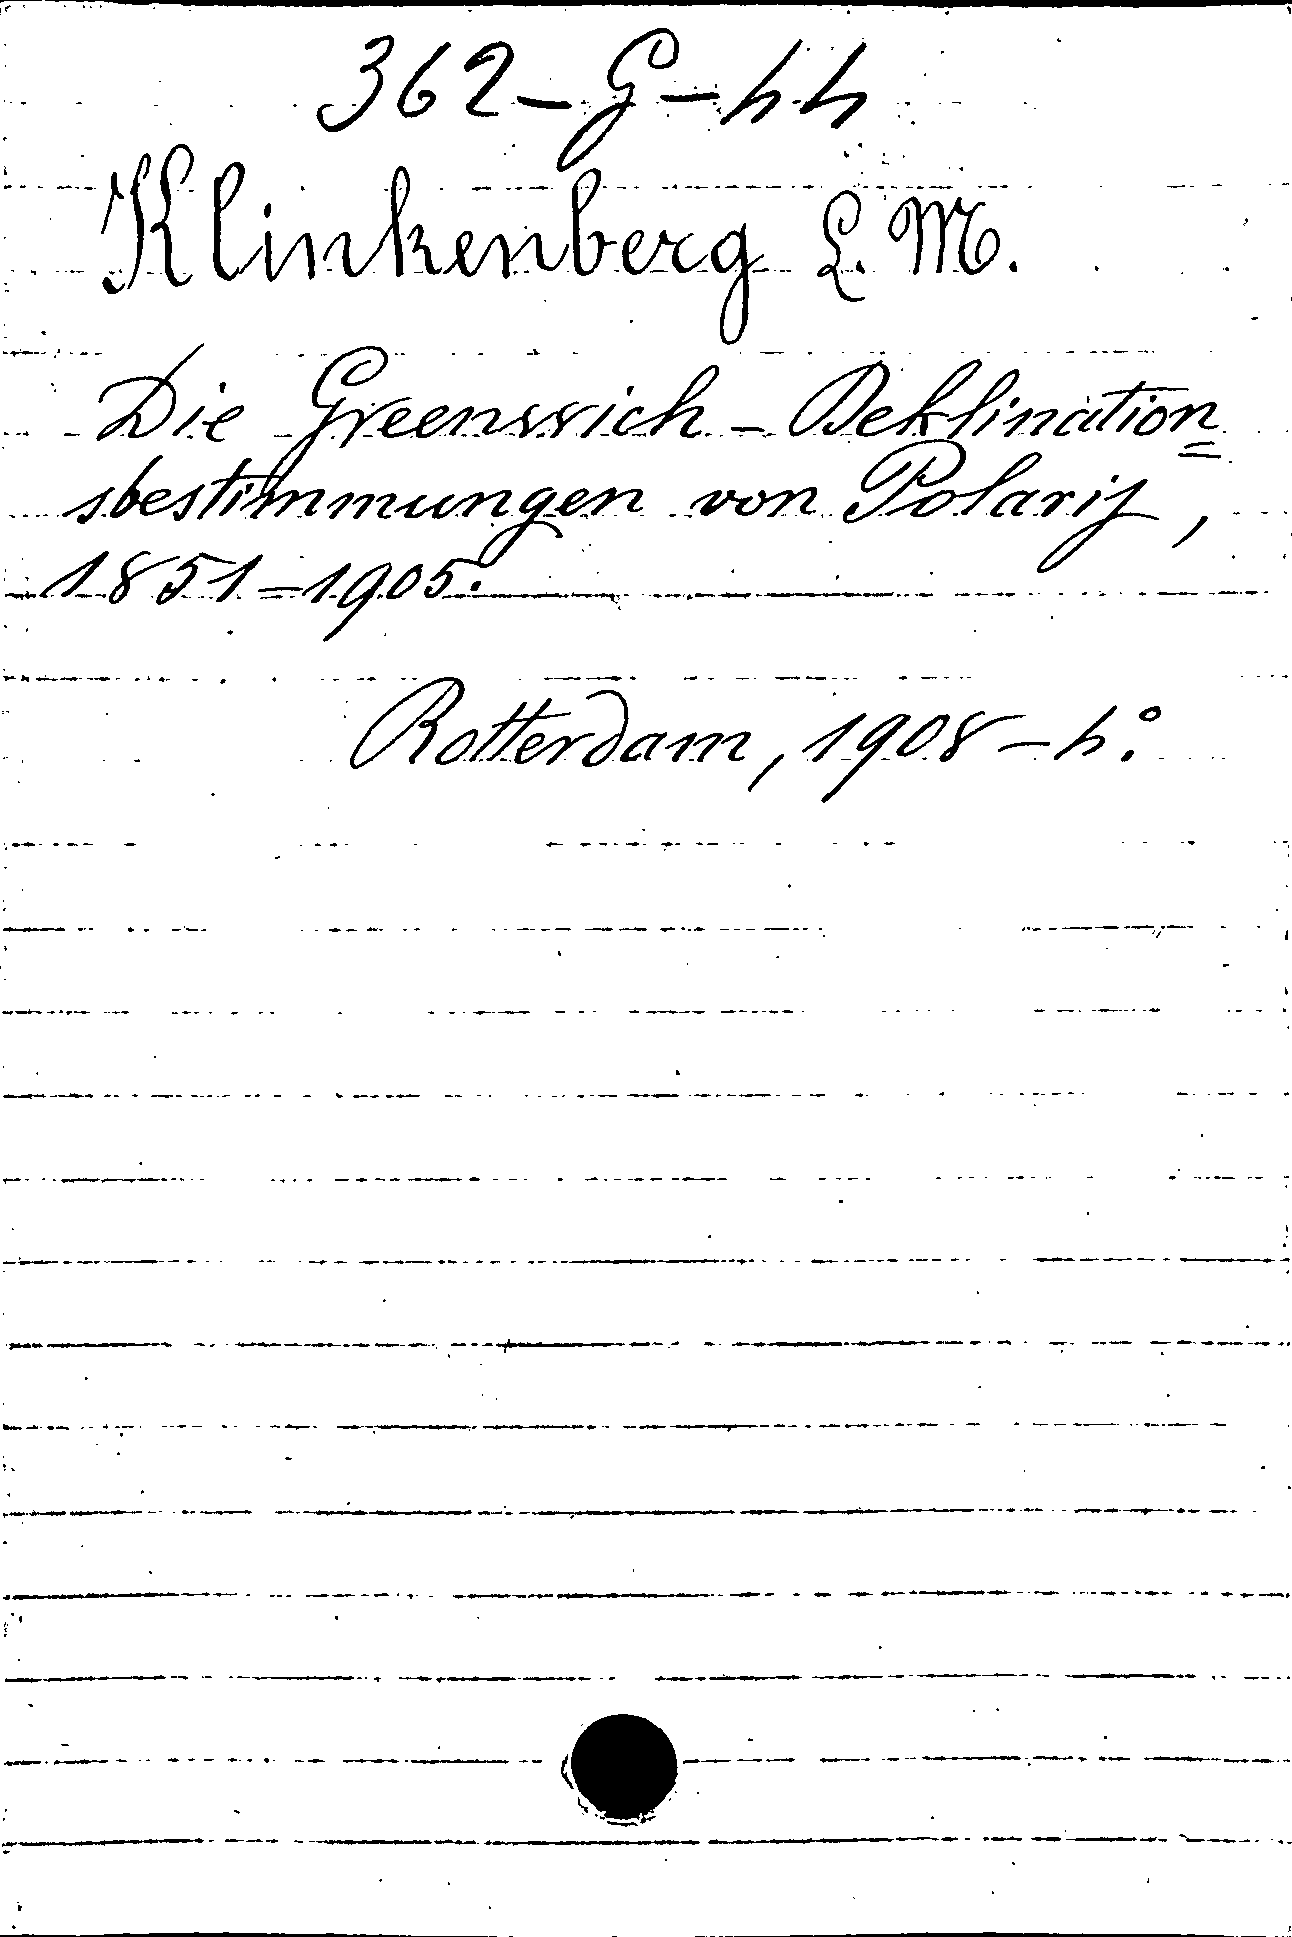 362-G-44
Klinkenberg L. M.
Die Greenwich-Deklination=
sbestimmungen von Polaris,
1851-1905.
Rotterdam, 1908-4º.